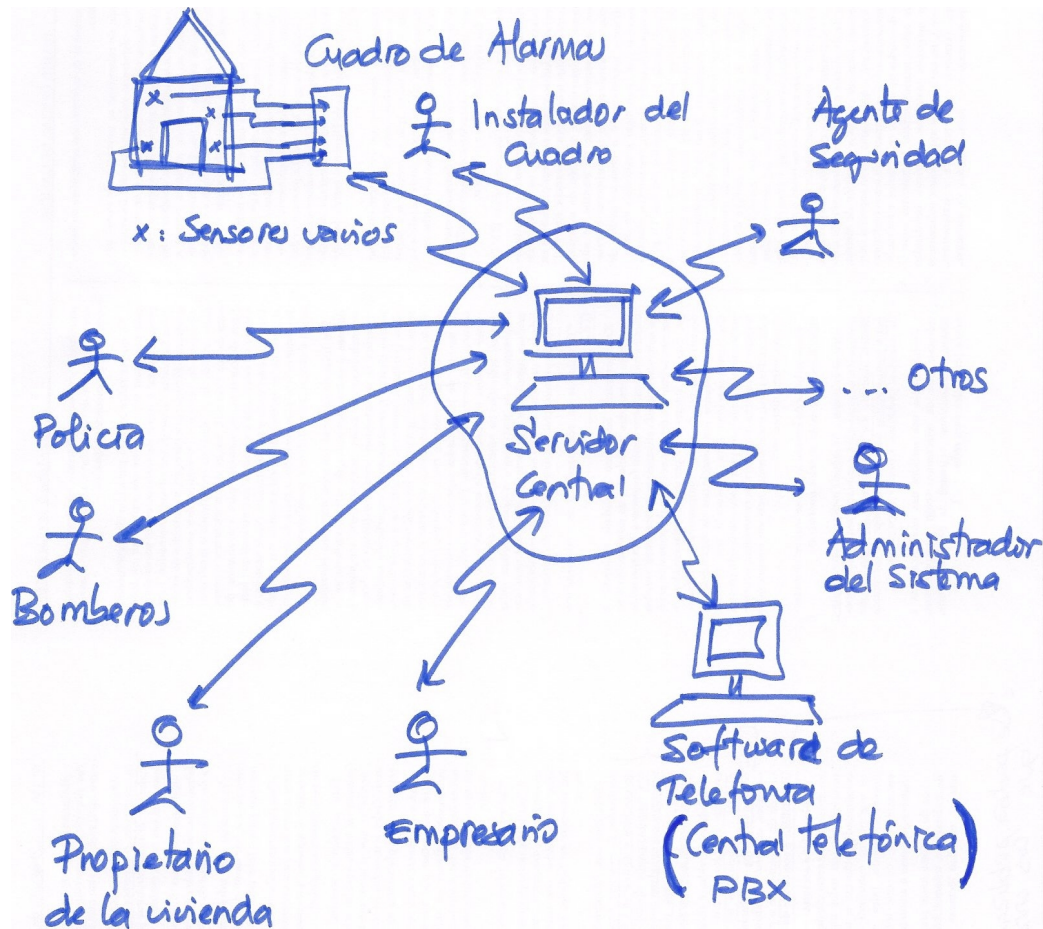 Cuadro de Alarmas
Instalador del
Cuadro
Agente de
Seguridad
x: Sensores varios
Policía
... Otros
Servidor
Central
Administrador
del Sistema
Bomberos
Software de
Telefonía
(Central telefónica)
PBX
Empresario
Propietario
de la vivienda